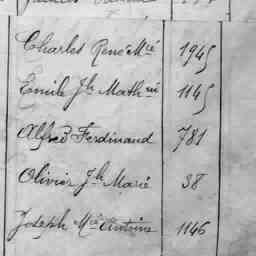 Charles René Mce 1945
Emile Jh Mathni 1145
Alfred Ferdinand 781
Olivier Jh Marie 38
Joseph Mce Antoine 1146